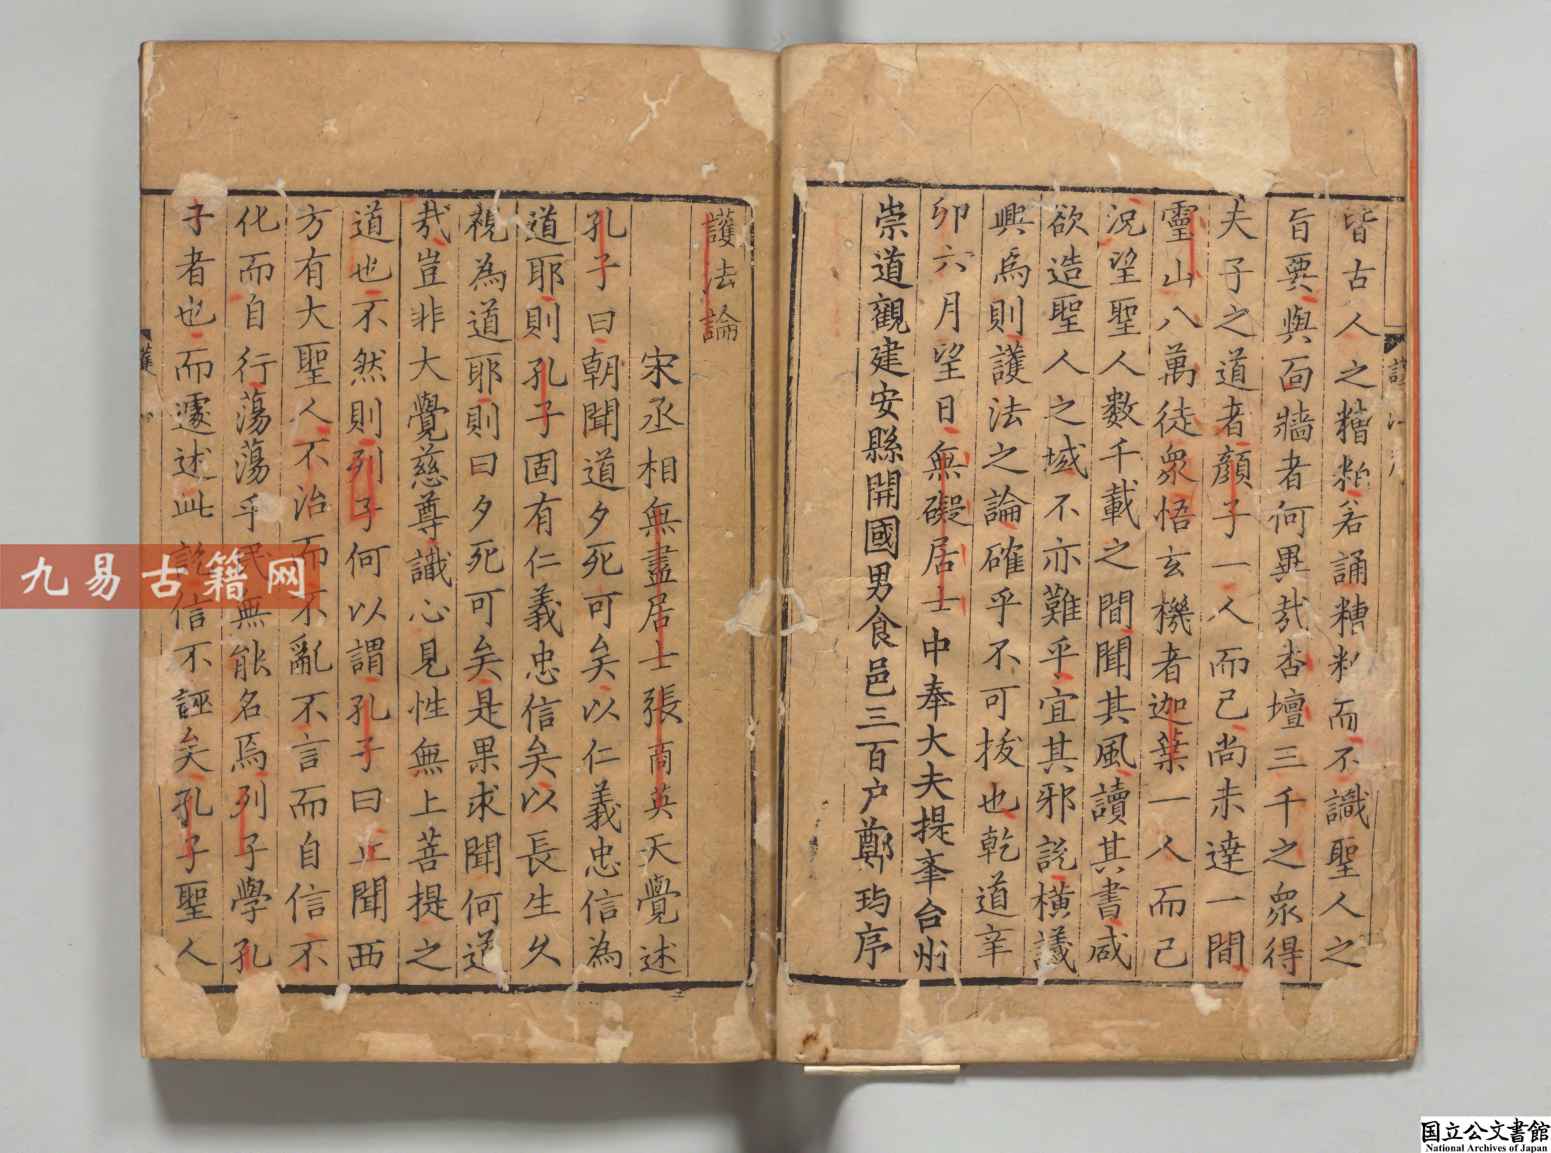 皆古人之糟粕若誦糟粕而不識聖人之
旨要與面牆者何異㦲杏壇三千之衆得
夫子之道者顔子一人而已尚未達一間
靈山八萬徒衆悟玄機者迦葉一人而已
況望聖人數千載之間聞其風讀其書咸
欲造聖人之域不亦難乎宜其邪説橫議
興焉則護法之論確乎不可拔也乾道辛
卯六月望日無礙居士中奉大夫提舉台州
崇道觀建安縣開國男食邑三百户鄭玙序
護法論
宋丞相無盡居士張商英天覺述
孔子曰朝聞道夕死可矣以仁義忠信為
道耶則孔子固有仁義忠信矣以長生久
視為道耶則曰夕死可矣是果求聞何道
㦲豈非大覺慈尊識心見性無上菩提之
道也不然則列子何以謂孔子曰丘聞西
方有大聖人不治而不亂不言而自信不
化而自行蕩蕩乎民無能名焉列子學孔
子者也而遽述此説信不誣矣孔子聖人
護
九易古籍网
国立公文書館
National Archives of Japan